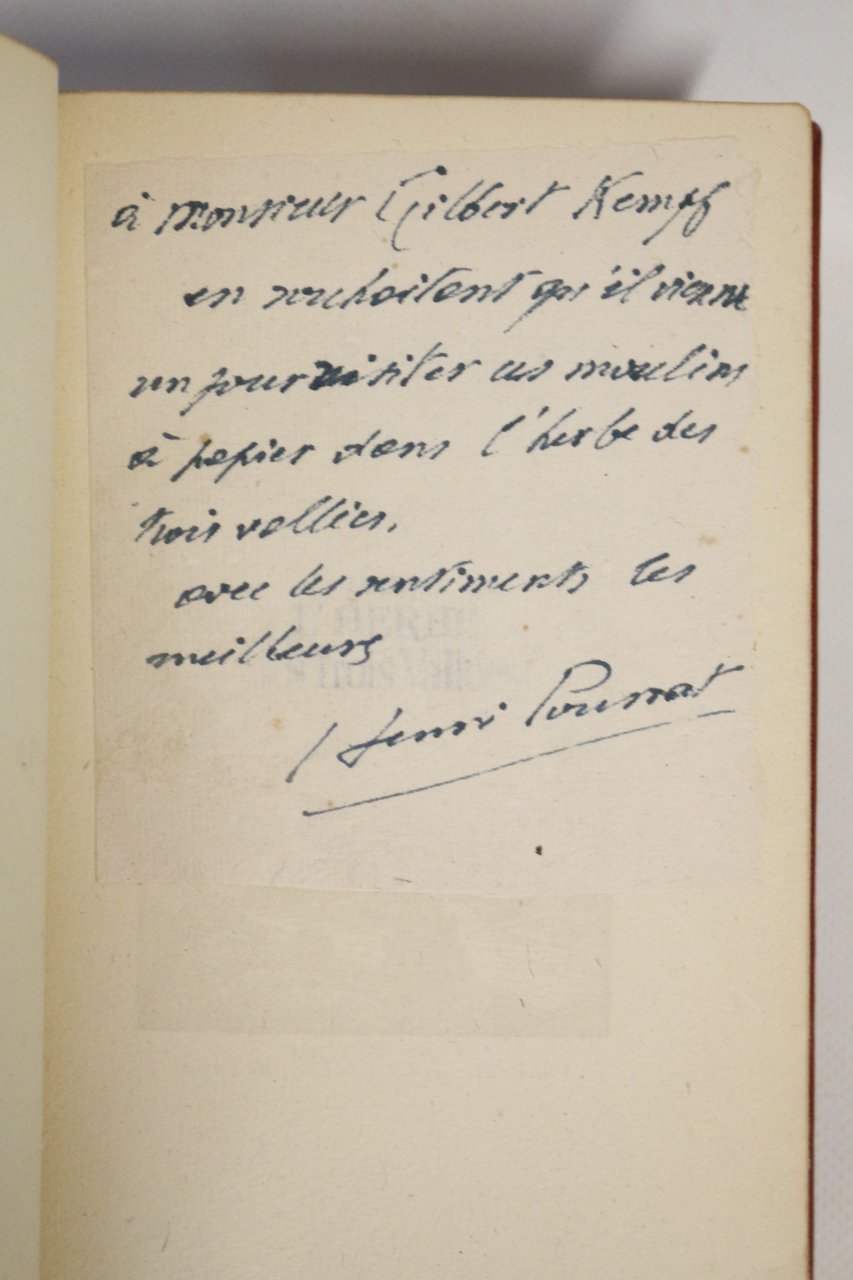 à Monsieur Gilbert Kempf
en souhaitant qu'il vienne
un jour visiter ces moulins
à papier dans l'herbe des
trois vallées,
avec les sentiments les
meilleurs
Henri Pourrat
L'HERBE
s Trois Vallées